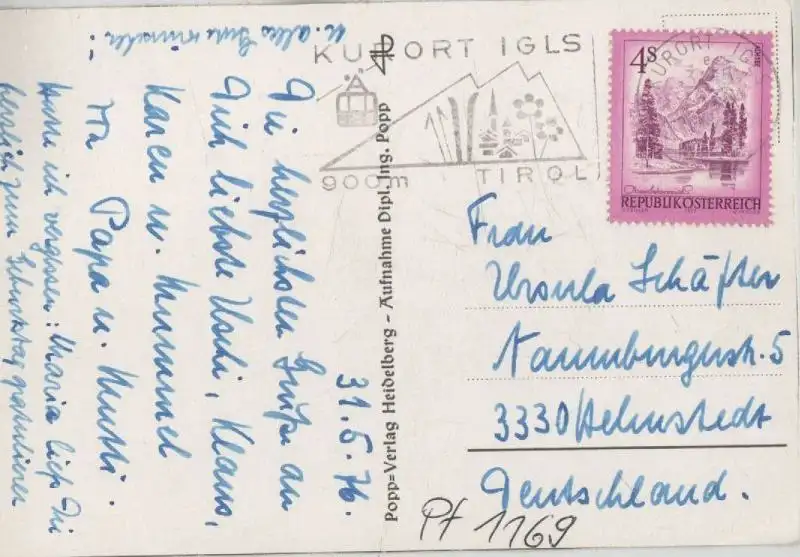 31.5.76.
Die herzlichsten Grüße an
Dich liebste Uschi, Klaus,
Karen u. Mummel
Ihr Papa u. Mutti.
Hatte ich vergessen: Maria ließ Dir
herzlich zum Geburtstag gratulieren
u. alles Gute wünschen.
Popp=Verlag Heidelberg - Aufnahme Dipl. Ing. Popp
KURORT IGLS
900m TIROL
KURORT IGLS
4S
REPUBLIK ÖSTERREICH
Frau
Ursula Schäffer
Naumburgerstr. 5
3330 Helmstedt
Deutschland.
Pf 1169